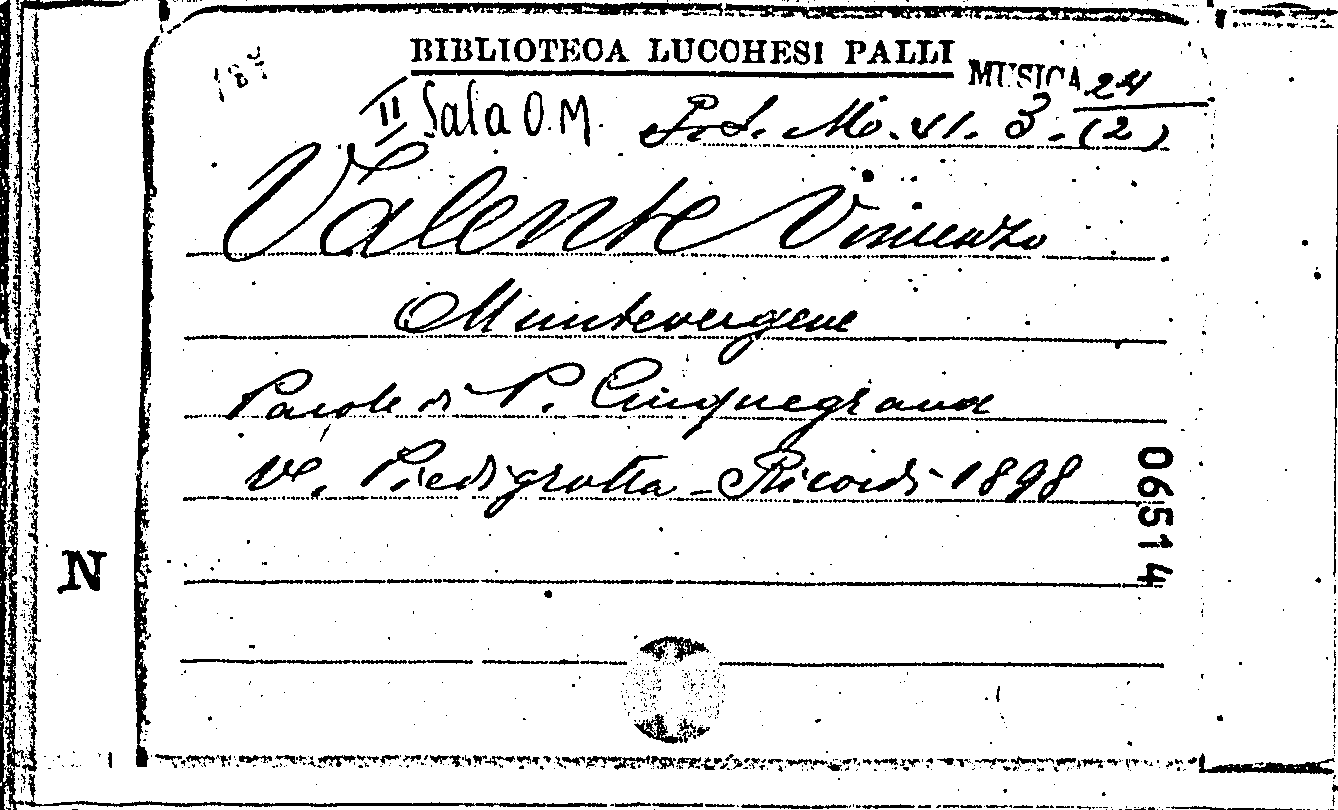 187
BIBLIOTECA LUCCHESI PALLI
MUSICA
II Sala O.M. Pos. Mo. VI. 3. 24 (2)
Valente Vincenzo
Muntevergene
Parole di P. Cinquegrana
Ve. Piedigrotta - Ricordi - 1898
06514
N